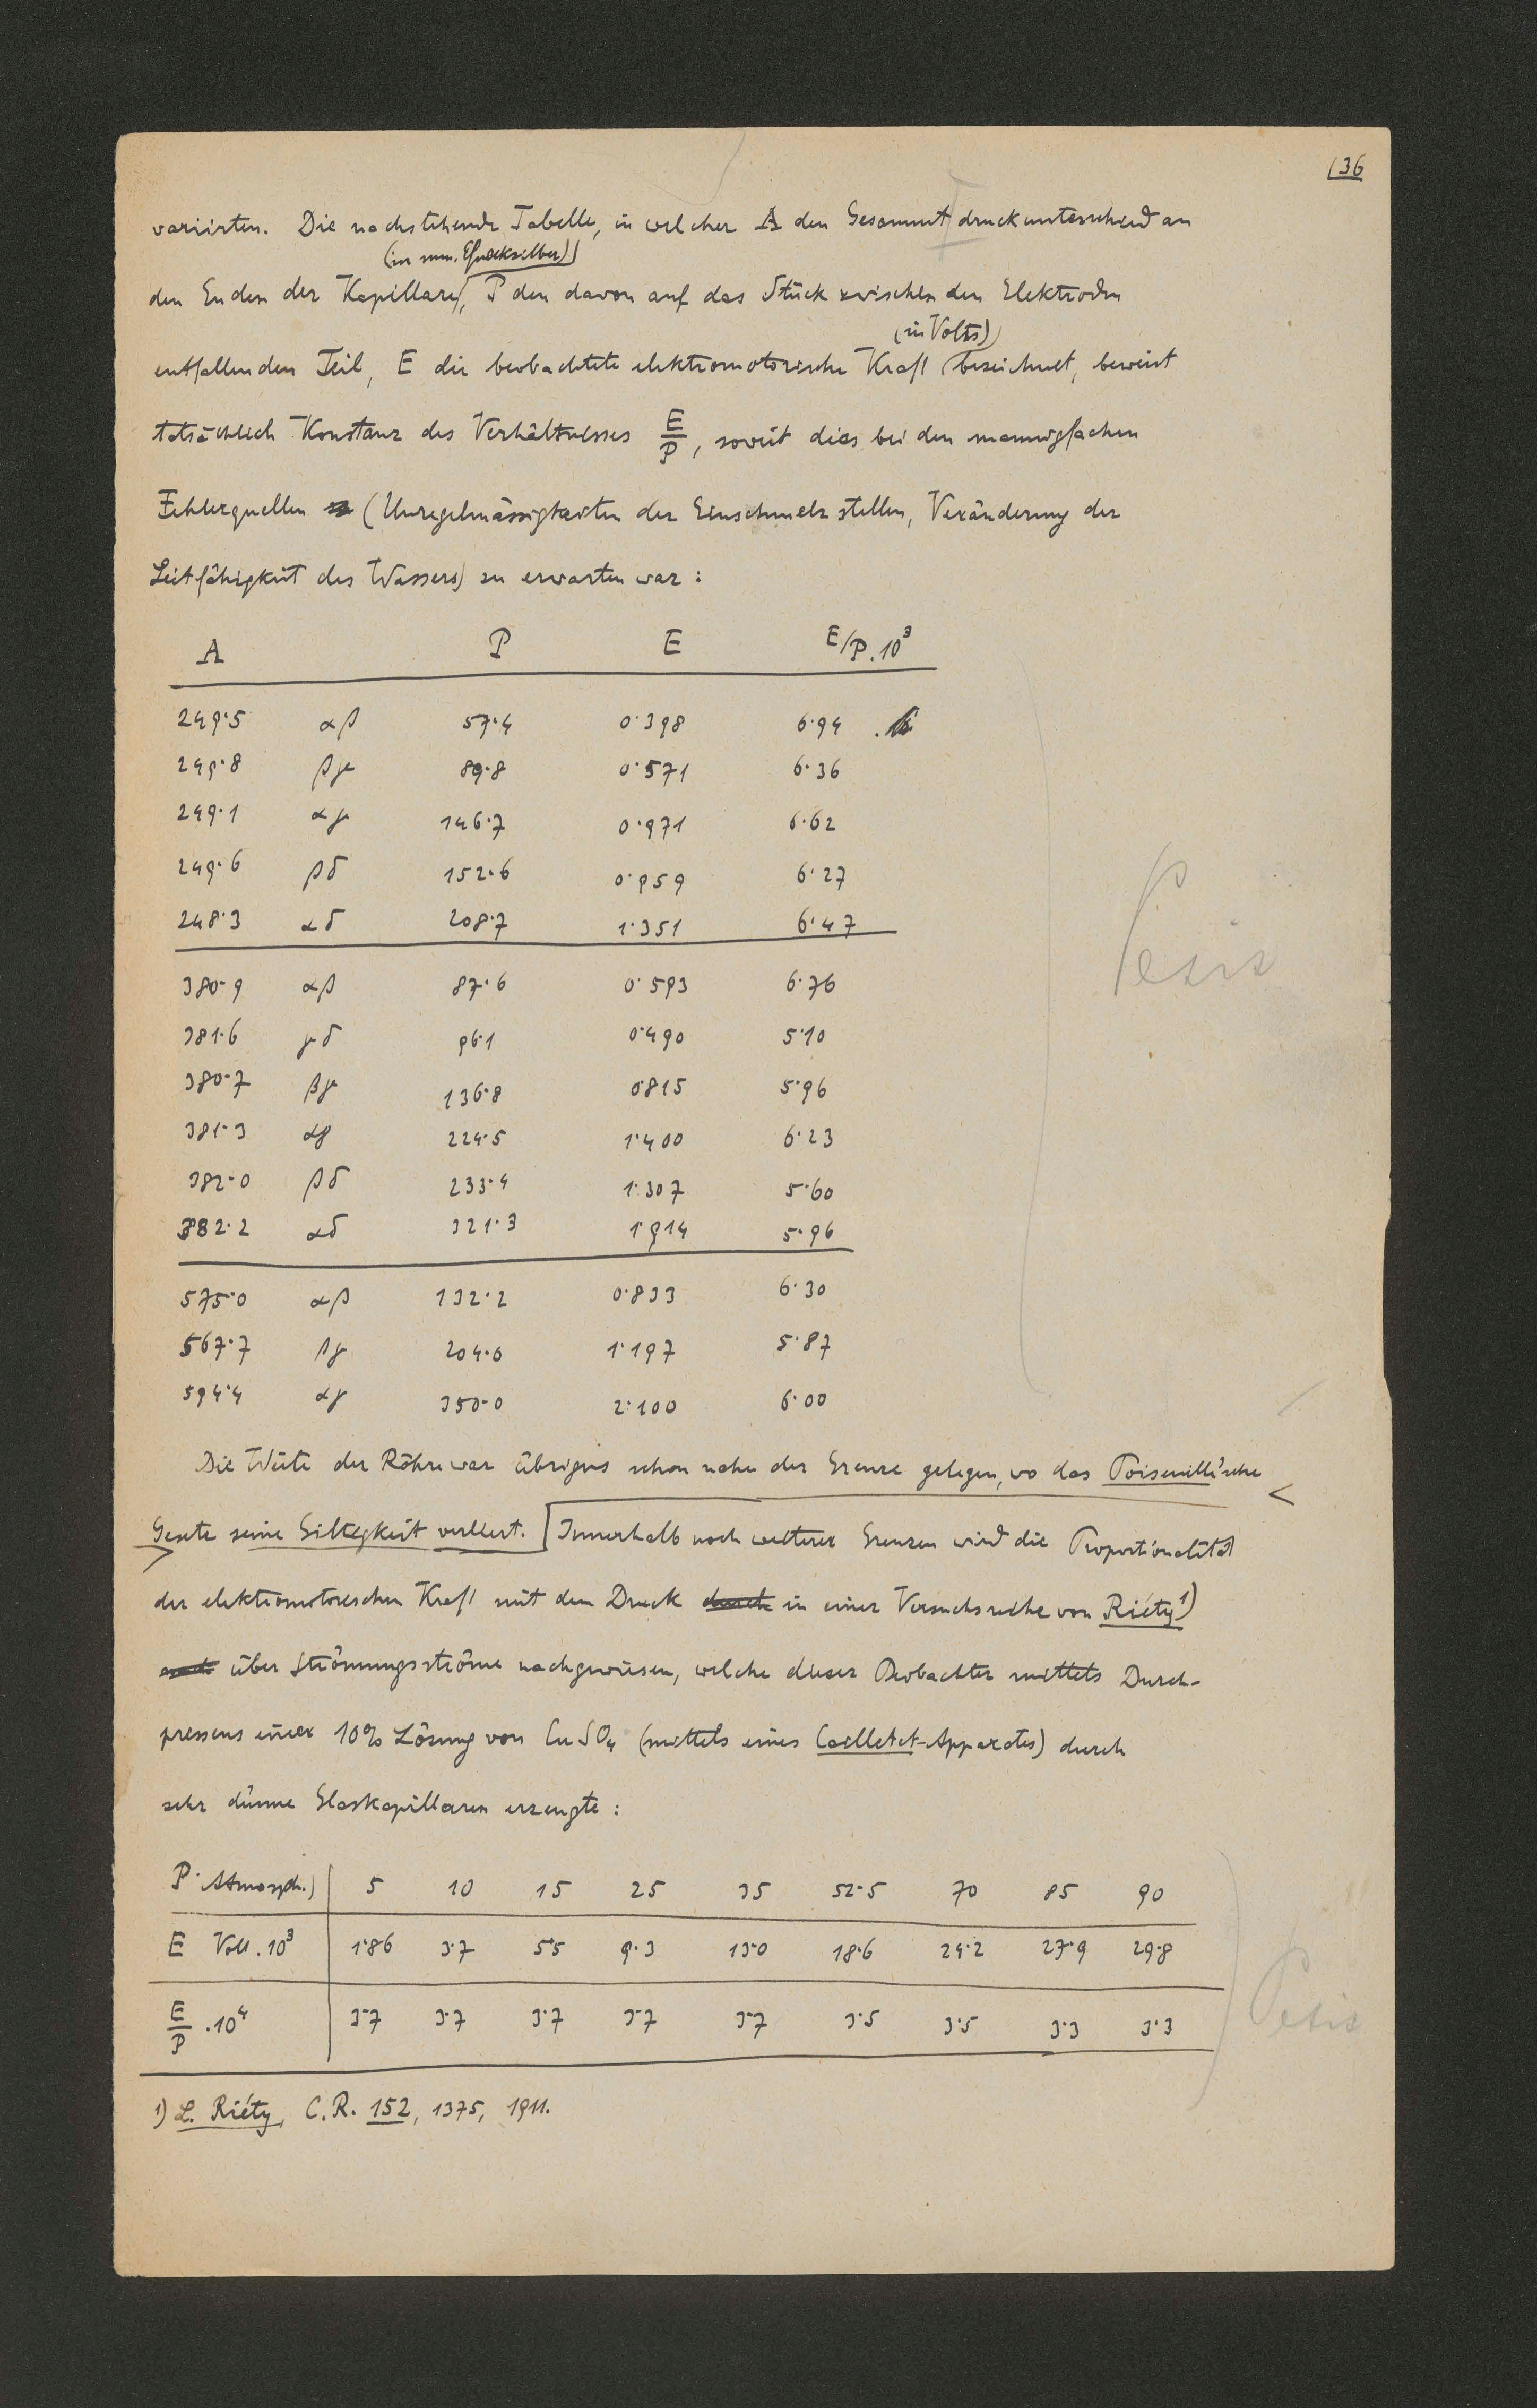 (36
variirten. Die nachstehende Tabelle, in welcher A den Gesammt druckunterschied an
(in mm. Quecksilber)
den Enden der Kapillare, P den davon auf das Stück zwischen den Elektroden
(in Volts)
entfallenden Teil, E die beobachtete elektromotorische Kraft bezeichnet, beweist
tatsächlich Konstanz des Verhältnisses E/P, soweit dies bei den mannigfachen
Fehlerquellen (Unregelmässigkeiten der Einschmelzstellen, Veränderung der
Leitfähigkeit des Wassers) zu erwarten war:
A P E E/P.10³
249·5 αβ 57·4 0·398 6·94
249·8 βγ 89·8 0·571 6·36
249·1 αγ 146·7 0·971 6·62
249·6 βδ 152·6 0·959 6·27
248·3 αδ 208·7 1·351 6·47
380·9 αβ 87·6 0·593 6·76
381·6 γδ 96·1 0·490 5·10
380·7 βγ 136·8 0·815 5·96
381·3 αγ 224·5 1·400 6·23
382·0 βδ 233·4 1·307 5·60
382·2 αδ 321·3 1·914 5·96
575·0 αβ 132·2 0·833 6·30
567·7 βγ 204·0 1·197 5·87
594·4 αγ 350·0 2·100 6·00
Petit
Die Weite der Röhre war übrigens schon nahe der Grenze gelegen, wo das Poiseuille'sche
Gesetz seine Giltigkeit verliert. Innerhalb noch weiterer Grenzen wird die Proportionalität
der elektromotorischen Kraft mit dem Druck durch in einer Versuchsreihe von Riéty¹)
über Strömungsströme nachgewiesen, welche dieser Beobachter mittels Durch-
pressens einer 10% Lösung von CuSO₄ (mittels eines Cailletet-Apparates) durch
sehr dünne Glaskapillaren erzeugte:
P Atmosph.) 5 10 15 25 35 52·5 70 85 90
E Volt.10³ 1·86 3·7 5·5 9·3 13·0 18·6 24·2 27·9 29·8
E/P .10⁴ 3·7 3·7 3·7 3·7 3·7 3·5 3·5 3·3 3·3
Petit
1) L. Riéty, C.R. 152, 1375, 1911.